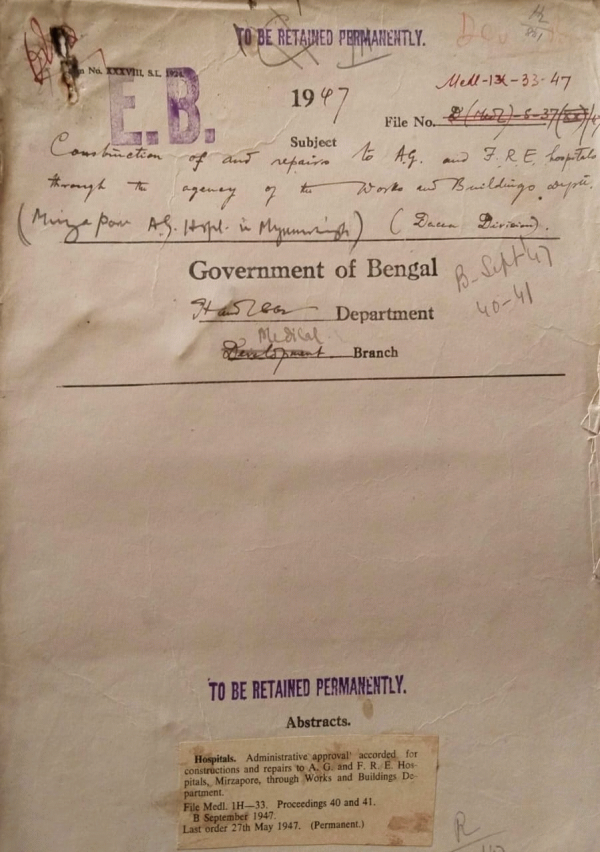 TO BE RETAINED PERMANENTLY.
No. XXXVIII, S.L.
E.B.
1947
Medl-1H-33-47
File No.
Subject
Construction of and repairs to A.G. and F.R.E. hospitals
through the agency of the Works and Buildings deptt.
(Mirzapore A.G. Hospl. in Mymensingh) (Dacca Division).
Government of Bengal
B-Sept 47
40-41
Department
Medical
Development Branch
TO BE RETAINED PERMANENTLY.
Abstracts.
Hospitals. Administrative approval accorded for
constructions and repairs to A. G. and F. R. E. Hos-
pitals, Mirzapore, through Works and Buildings De-
partment.
File Medl. 1H—33. Proceedings 40 and 41.
B September 1947.
Last order 27th May 1947. (Permanent.)
R